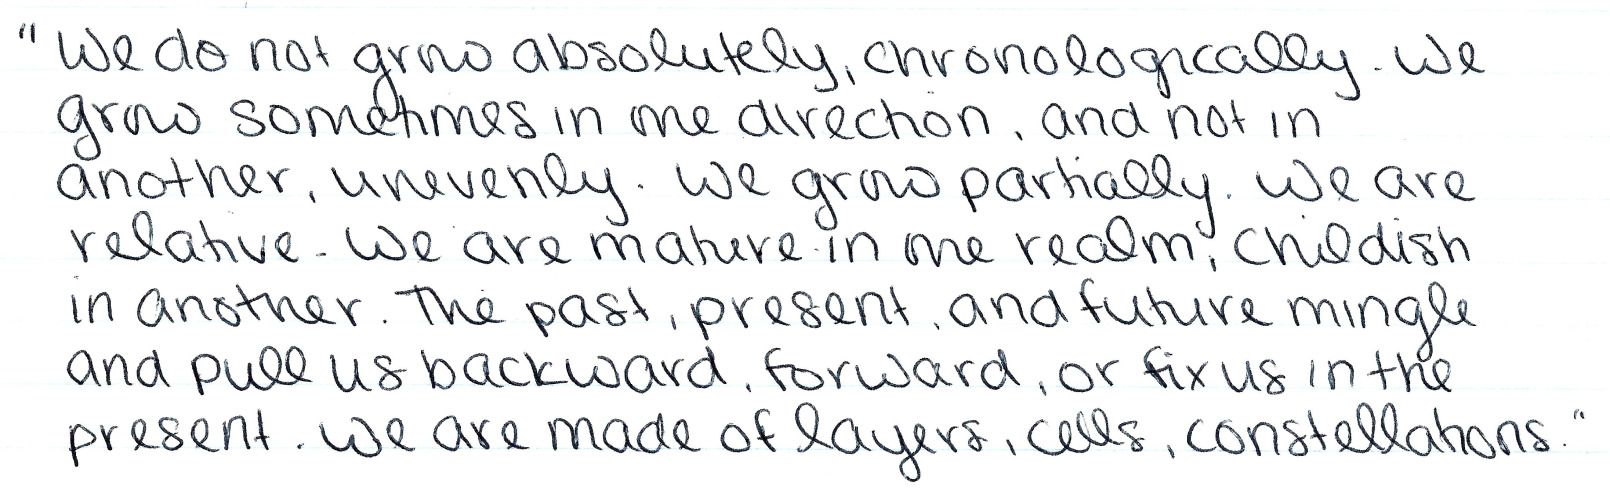 "We do not grow absolutely, chronologically. We
grow sometimes in one direction, and not in
another, unevenly. We grow partially. We are
relative. We are mature in one realm, childish
in another. The past, present, and future mingle
and pull us backward, forward, or fix us in the
present. We are made of layers, cells, constellations."